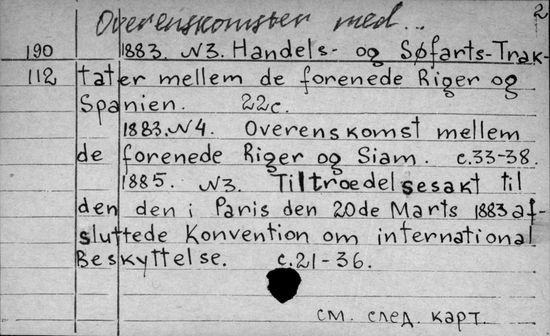 Overenskomster med...
2
190 1883. N3. Handels- og Søfarts-Trak-
112 tater mellem de forenede Riger og
Spanien. 22c.
1883. N4. Overenskomst mellem
de forenede Riger og Siam. c.33-38.
1885. N3. Tiltroedelsesakt til
den den i Paris den 20de Marts 1883 af-
sluttede Konvention om international
Beskyttelse. c.21-36.
см. след. карт.